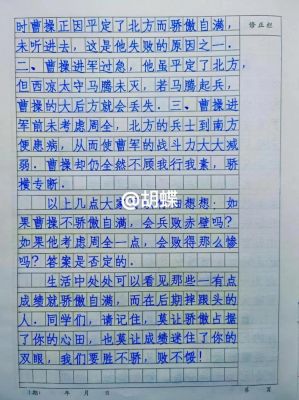 修正栏
时曹操正因平定了北方而骄傲自满，
未听进去，这是他失败的原因之一．
二、曹操进军过急，他虽平定了北方，
但西凉太守马腾未灭，若马腾起兵，
曹操的大后方就会丢失．三、曹操进
军前未考虑周全，北方的兵士到南方
便患病，从而使曹军的战斗力大大减
弱．曹操却仍全然不顾我行我素，骄
横专断．
以上几点大家 想想：如
@胡蝶
果曹操不骄傲自满，会兵败赤壁吗？
如果他考虑周全一点，会败得那么惨
吗？答案是否定的．
生活中处处可以看见那些一有点
成绩就骄傲自满，而在后期摔跟头的
人．同学们，请记住，莫让骄傲占据
了你的心田，也莫让成绩迷住了你的
双眼，我们要胜不骄，败不馁！
日期： 年 月 日
第 页